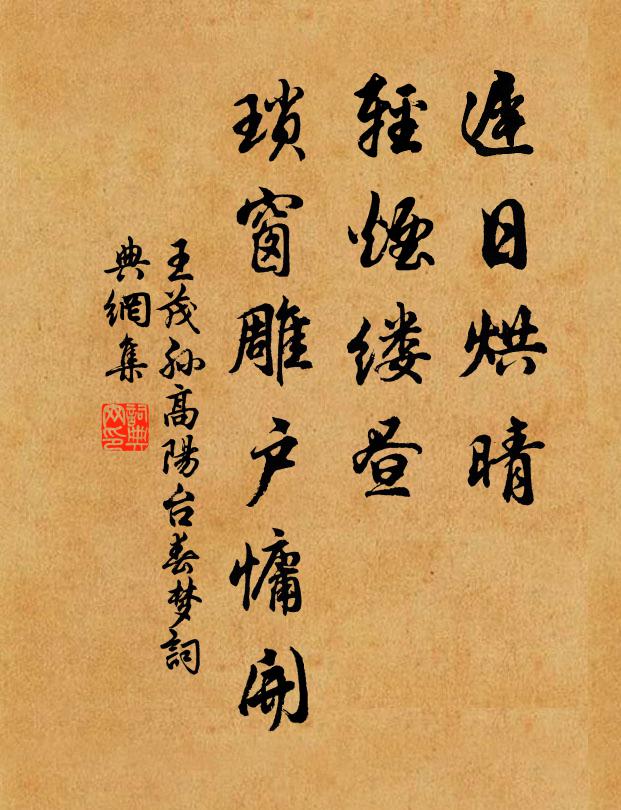 遲日烘晴
輕煙縷晝
瑣窗雕户慵開
王茂孙高陽台春梦詞
典網集
詞典
网印